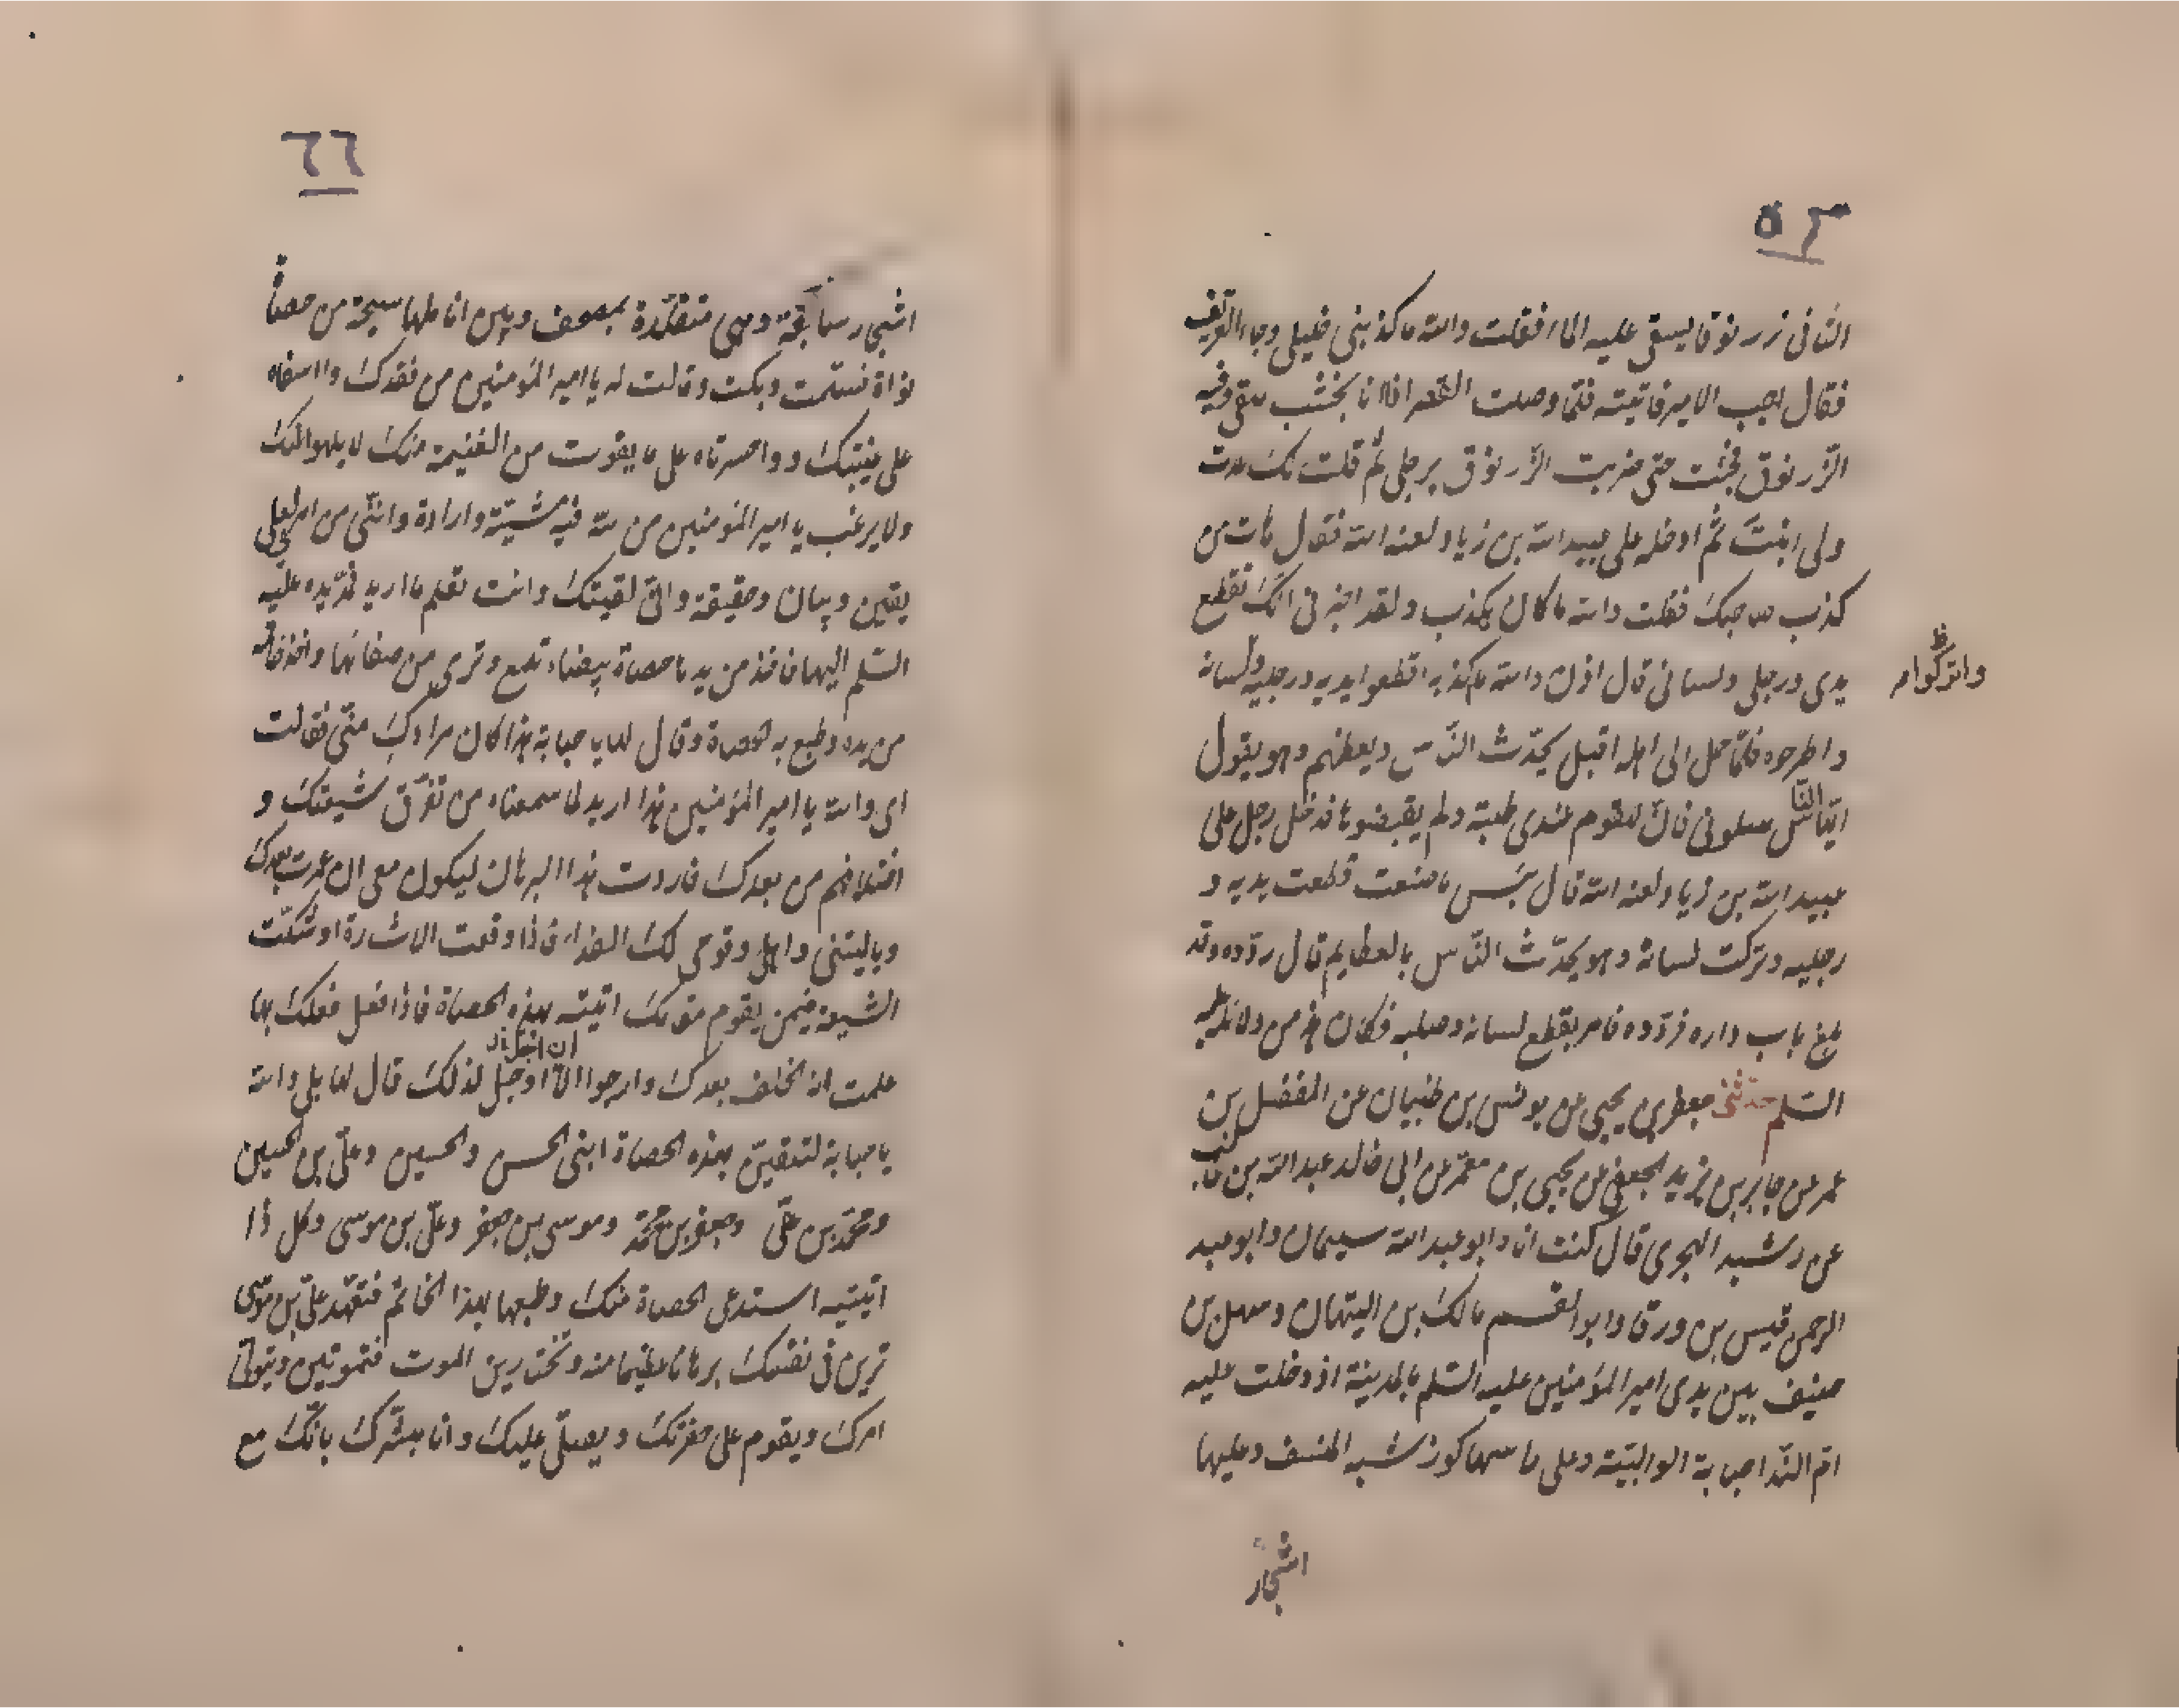 ٥٣
الثانى زرنوقا يسقى عليه الماء فقلت والله ما كذبنى خليلى وجاء العريف
فقال اجب الامير فاتيته فلما وصلت القصر اذا انا بخشب ملقى وفيه
الزرنوق فجئت حتى ضربت الزرنوق برجلى ثم قلت لك
ولى انبتّ ثم ادخله على عبيد الله بن زياد لعنه الله فقال هات من
كذب صاحبك فقلت والله ما كان يكذب ولقد اخبرنى انك تقطع
يدى ورجلى ولسانى قال اذن والله نكذبه اقطعوا يديه ورجليه ولسانه
واتركوا
ظ
واطرحوه فلمّا حمل الى اهله اقبل يحدّث النّاس ويعظهم وهو يقول
ايّها النّاس سلونى فانّ للقوم عندى طلبة ولم يقبضوها فدخل رجل على
عبيد الله بن زياد لعنه الله قال بئس ما صنعت قطعت يديه و
رجليه وتركت لسانه وهو يحدّث النّاس بالعظايم قال ردّوه وقد
بلغ باب داره فردّوه فامر بقطع لسانه وصلبه فكان هذا من دلائله عليه
السّلم حدثنى جعفر بن يحيى عن يونس بن ظبيان عن المفضل بن
عمر عن جابر بن يزيد الجعفى عن يحيى بن معمّر عن ابى خالد عبد الله بن غالب
عن رشيد الهجرى قال كنت انا وابو عبد الله سليمان وابو عبد
الرحمن قيس بن ورقا وابو القسم مالك بن التيهان وسهل بن
حنيف بين يدى امير المؤمنين عليه السّلم بالمدينة اذ دخلت عليه
امّ النّدا حبابة الوالبيّة وعلى راسها كور شبه المنسف وعليها
اشجار
٦٦
سابغة وهى متقلّدة بمصحف وبين اناملها سبحة من حصاة
نواة فسلمت وبكت وقالت له يا امير المؤمنين من فقدك وا اسفاه
على غيبتك وواحسرتاه على ما يفوت من الغنيمة منك لا يلهو عنك
ولا يرغب يا امير المؤمنين من لله فيه مشيّة وارادة وانّنى من امرى لعلى
يقين وبيان وحقيقة وانّى لقيتك وانت تعلم ما اريد فمدّ يده عليه
السّلم اليها فاخذ من يدها حصاة بيضاء تلمع وترى من صفائها واخذ خاتمه
من يده وطبع به الحصاة وقال لها يا حبابة هذا كان مرادك منّى فقالت
اى والله يا امير المؤمنين هذا اريد لما سمعناه من تفرّق شيعتك و
اختلافهم من بعدك فاردت هذا البرهان ليكون معى ان عمرت بعدك
ويا ليتنى واهلى وقومى لك الفداء فاذا وقعت الاشارة او شكّت
الشيعة فيمن يقوم مقامك اتيته بهذه الحصاة فاذا فعل فعلك بها
علمت انه الخلف بعدك وارجوا الّا اوجل لذلك قال لها بلى والله
يا حبابة لتلقينّ بهذه الحصاة ابنى الحسن والحسين وعلىّ بن الحسين
ومحمّد بن علىّ وجعفر بن محمّد وموسى بن جعفر وعلىّ بن موسى وكل اذا
اتيتيه استدعى الحصاة منك وطبعها بهذا الخاتم فبعهد علىّ بن موسى
ترين فى نفسك برهانا عظيما منه وتختارين الموت فتموتين ويتولّى
امرك ويقوم على حفرتك ويصلّى عليك وانا مبشّرك بانّك مع